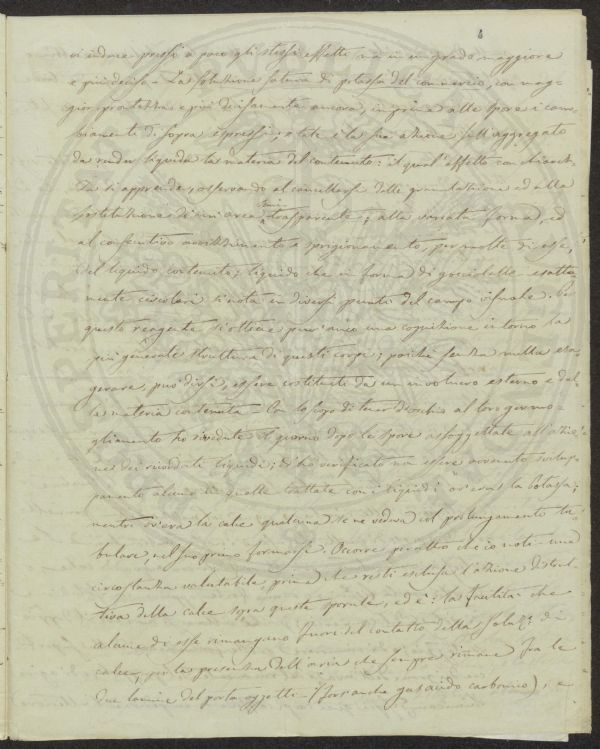 vi induce pressi a poco gli stessi effetti ma in un grado maggiore
e più deciso. La soluzione satura di potassa del commercio, con mag-
gior prontezza e più decisamente ancora, imprime alle spore i cam-
biamenti di sopra espressi; e tale è la sua azione sull'aggregato
da render liquida la materia del contenuto: il qual'effetto con chiarez-
za si apprende, osservando al cancellarsi delle granulazioni ed alla
sostituzione di un'area trasparente; alla variata forma, ed
al consecutivo avvizzimento e sprigionamento, per molte di esse,
del liquido contenuto; liquido che in forma di goccioletti esatta-
mente circolari si nota in diversi punti del campo visuale. Da
questo reagente si ottiene pur'anco una cognizione intorno la
più generale struttura di questi corpi; poiché senza nulla esa-
gerare, può dirsi, essere costituiti da un involucro esterno e dal-
la materia contenuta. Con lo scopo di tener d'occhio al loro germo-
gliamento ho rivedute il giorno dopo le spore assoggettate all'azio-
ne dei ricordati liquidi; ed ho verificato non essere avvenuto svilup-
pamento alcuno in quelle trattate con i liquidi ov'era la potassa;
mentre ov'era la calce qualcuna se ne vedeva col prolungamento tu-
bulare, nel suo primo formarsi. Occorre peraltro che io noti una
circostanza valutabile, prima che resti esclusa l'azione distrut-
tiva della calce sopra queste sporule, ed è: la facilità che
alcune di esse rimangino fuori del contatto della soluz.e di
calce, per la presenza dell'aria che sempre rimane fra le
due lamine del porta oggetti (fors'anche gas acido carbonico), e